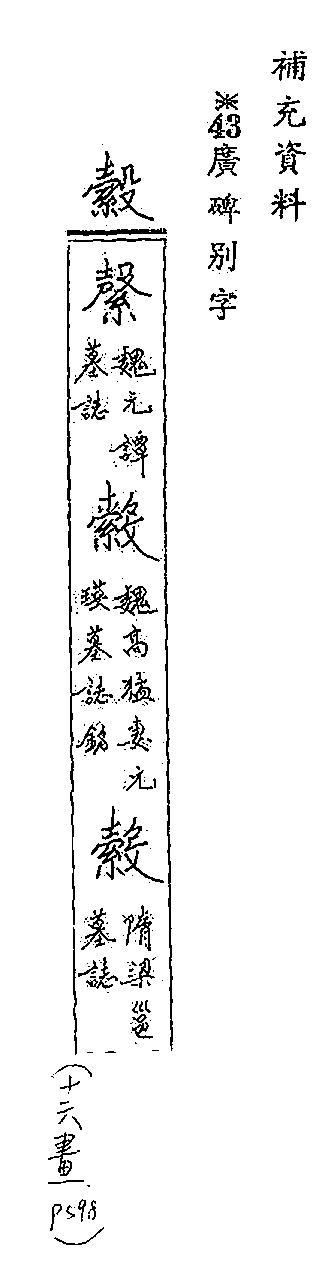 補充資料
※43廣碑別字
縠
魏元譚
墓誌
魏高猛妻元
瑛墓誌銘
隋梁邕
墓誌
(十六畫
P598)